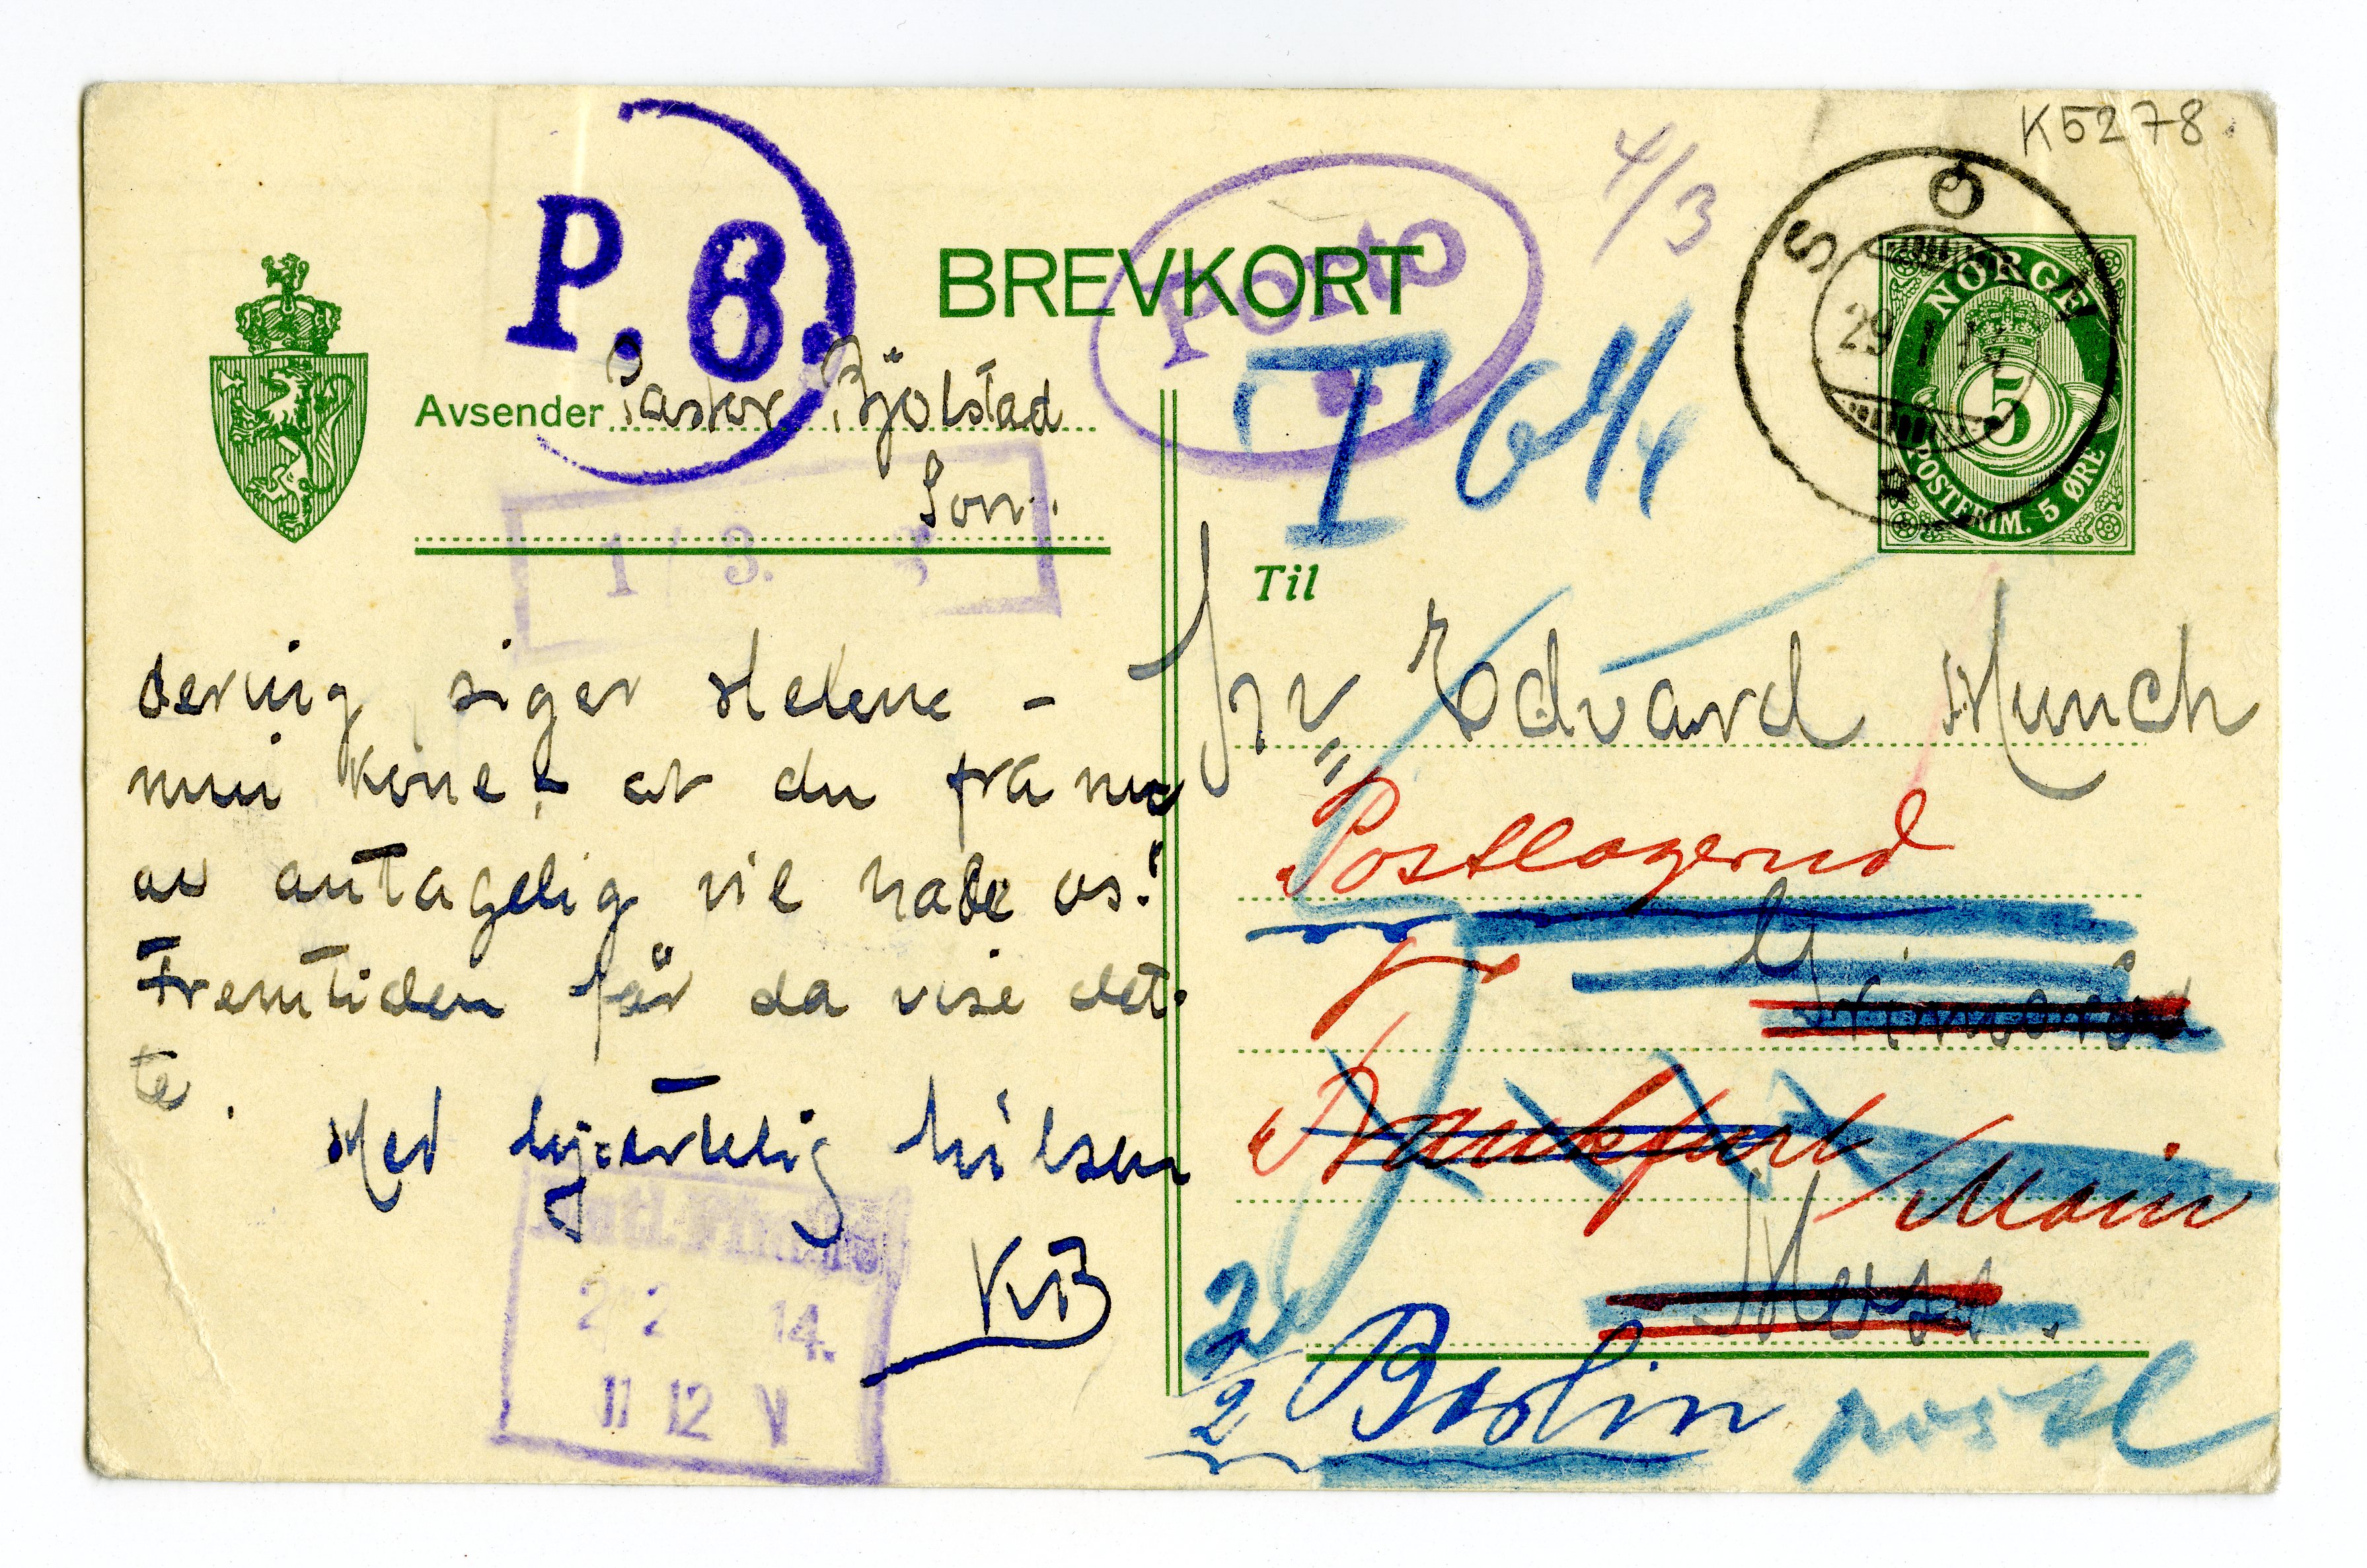 K5278.
P. 8.
Porto
4/3
SON
29 I 14
NORGE
5
POSTFRIM. 5 ØRE
BREVKORT
T 64/4
Avsender Pastor Bjølstad
Son.
1 3.
Til
Hr. Edvard Munch
Postlagernd
Grimsrød
Frankfurt / Main
Moss.
2/2 Berlin postl
dering siger Helene –
min kone – at du fra nu
av antagelig vil hade os!
Fremtiden får da vise det-
te.
Med hjærtelig hilsen
KB
2/2 14.
11 12 V